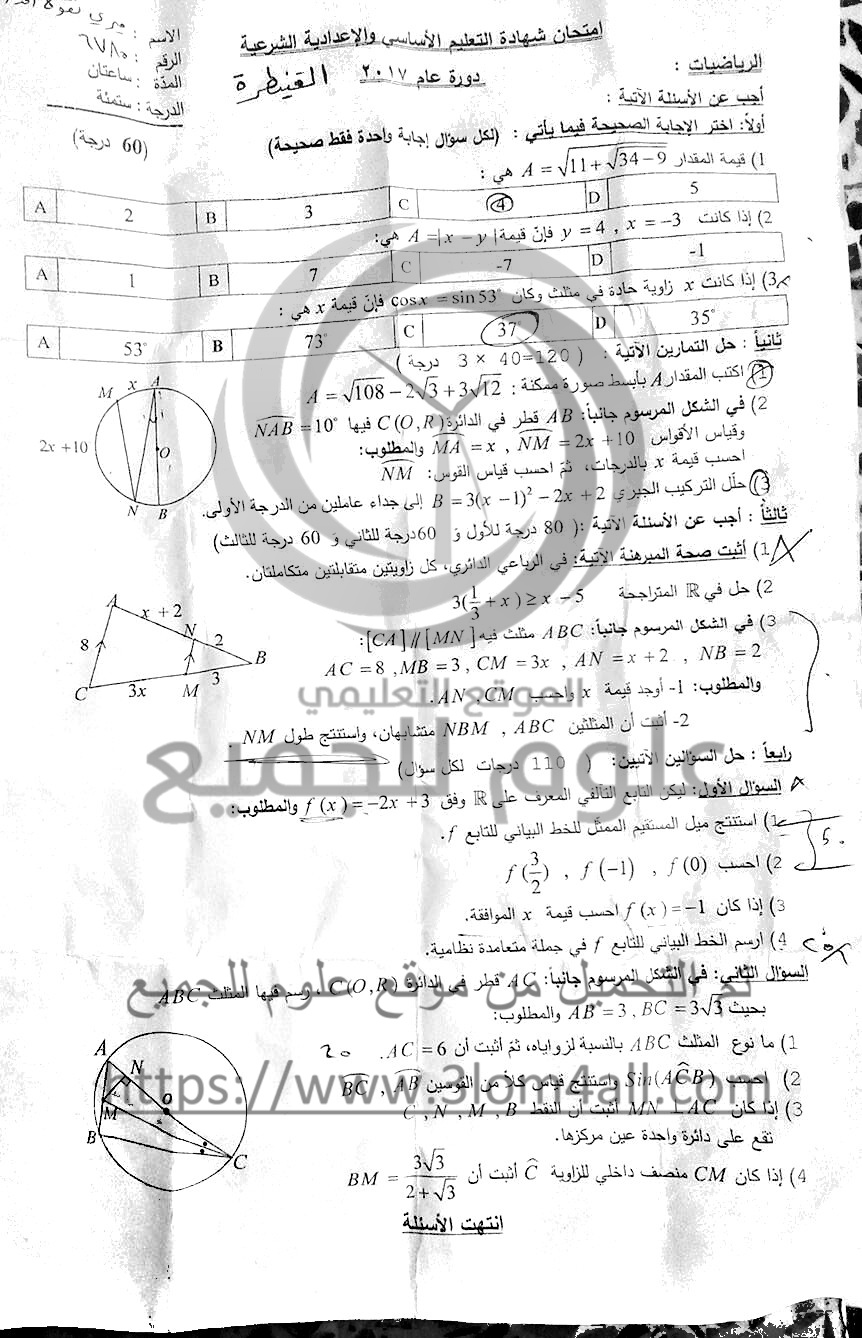 امتحان شهادة التعليم الأساسي والإعدادية الشرعية
دورة عام ٢٠١٧ القنيطرة
الاسم :
الرقم : ٦٧٨٠
المدة : ساعتان
الدرجة : ستمئة
الرياضيات :
أجب عن الأسئلة الآتية :
أولاً: اختر الإجابة الصحيحة فيما يأتي : (لكل سؤال إجابة واحدة فقط صحيحة) (60 درجة)
1) قيمة المقدار A = √(11+√(34−9)) هي :
A 2 B 3 C 4 D 5
2) إذا كانت x = −3 , y = 4 فإنّ قيمة A =|x − y| هي:
A 1 B 7 C -7 D -1
3) إذا كانت x زاوية حادة في مثلث وكان cos x = sin 53° فإنّ قيمة x هي :
A 53° B 73° C 37° D 35°
ثانياً : حل التمارين الآتية : (3 × 40=120 درجة)
1) اكتب المقدار A بأبسط صورة ممكنة : A = √108 − 2√3 + 3√12
2) في الشكل المرسوم جانباً: AB قطر في الدائرة C(O,R) فيها NAB = 10°
وقياس الأقواس NM = 2x +10 , MA = x والمطلوب:
احسب قيمة x بالدرجات، ثمّ احسب قياس القوس: NM
3) حلّل التركيب الجبري B = 3(x −1)² − 2x + 2 إلى جداء عاملين من الدرجة الأولى.
M x A
2x +10
O
N B
ثالثاً : أجب عن الأسئلة الآتية :( 80 درجة للأول و 60 درجة للثاني و 60 درجة للثالث)
1) أثبت صحة المبرهنة الآتية: في الرباعي الدائري، كل زاويتين متقابلتين متكاملتان.
2) حل في ℝ المتراجحة 3(1/3 + x) ≥ x − 5
3) في الشكل المرسوم جانباً: ABC مثلث فيه [CA] // [MN]:
AC = 8 , MB = 3 , CM = 3x , AN = x + 2 , NB = 2
والمطلوب: 1- أوجد قيمة x واحسب AN , CM.
2- أثبت أن المثلثين NBM , ABC متشابهان، واستنتج طول NM .
A x + 2
N 2
8 B
C 3x M 3
رابعاً : حل السؤالين الآتيين: ( 110 درجات لكل سؤال)
السؤال الأول: ليكن التابع التآلفي المعرف على ℝ وفق f(x) = −2x +3 والمطلوب:
1) استنتج ميل المستقيم الممثّل للخط البياني للتابع f.
2) احسب f(3/2) , f(−1) , f(0)
3) إذا كان f(x) = −1 احسب قيمة x الموافقة.
4) ارسم الخط البياني للتابع f في جملة متعامدة نظامية.
السؤال الثاني: في الشكل المرسوم جانباً: AC قطر في الدائرة C(O,R) ، رسم فيها المثلث ABC
بحيث AB = 3 , BC = 3√3 والمطلوب:
1) ما نوع المثلث ABC بالنسبة لزواياه، ثمّ أثبت أن AC = 6. ٢٠
2) احسب Sin(ACB) واستنتج قياس كلاً من القوسين BC , AB
3) إذا كان MN ⊥ AC أثبت أن النقط C , N , M , B
تقع على دائرة واحدة عين مركزها.
4) إذا كان CM منصف داخلي للزاوية C أثبت أن BM = 3√3/(2+√3)
A N
O
M
B
C
انتهت الأسئلة
الموقع التعليمي
علوم للجميع
تم التحميل من موقع علوم للجميع
https://www.3lom4all.com